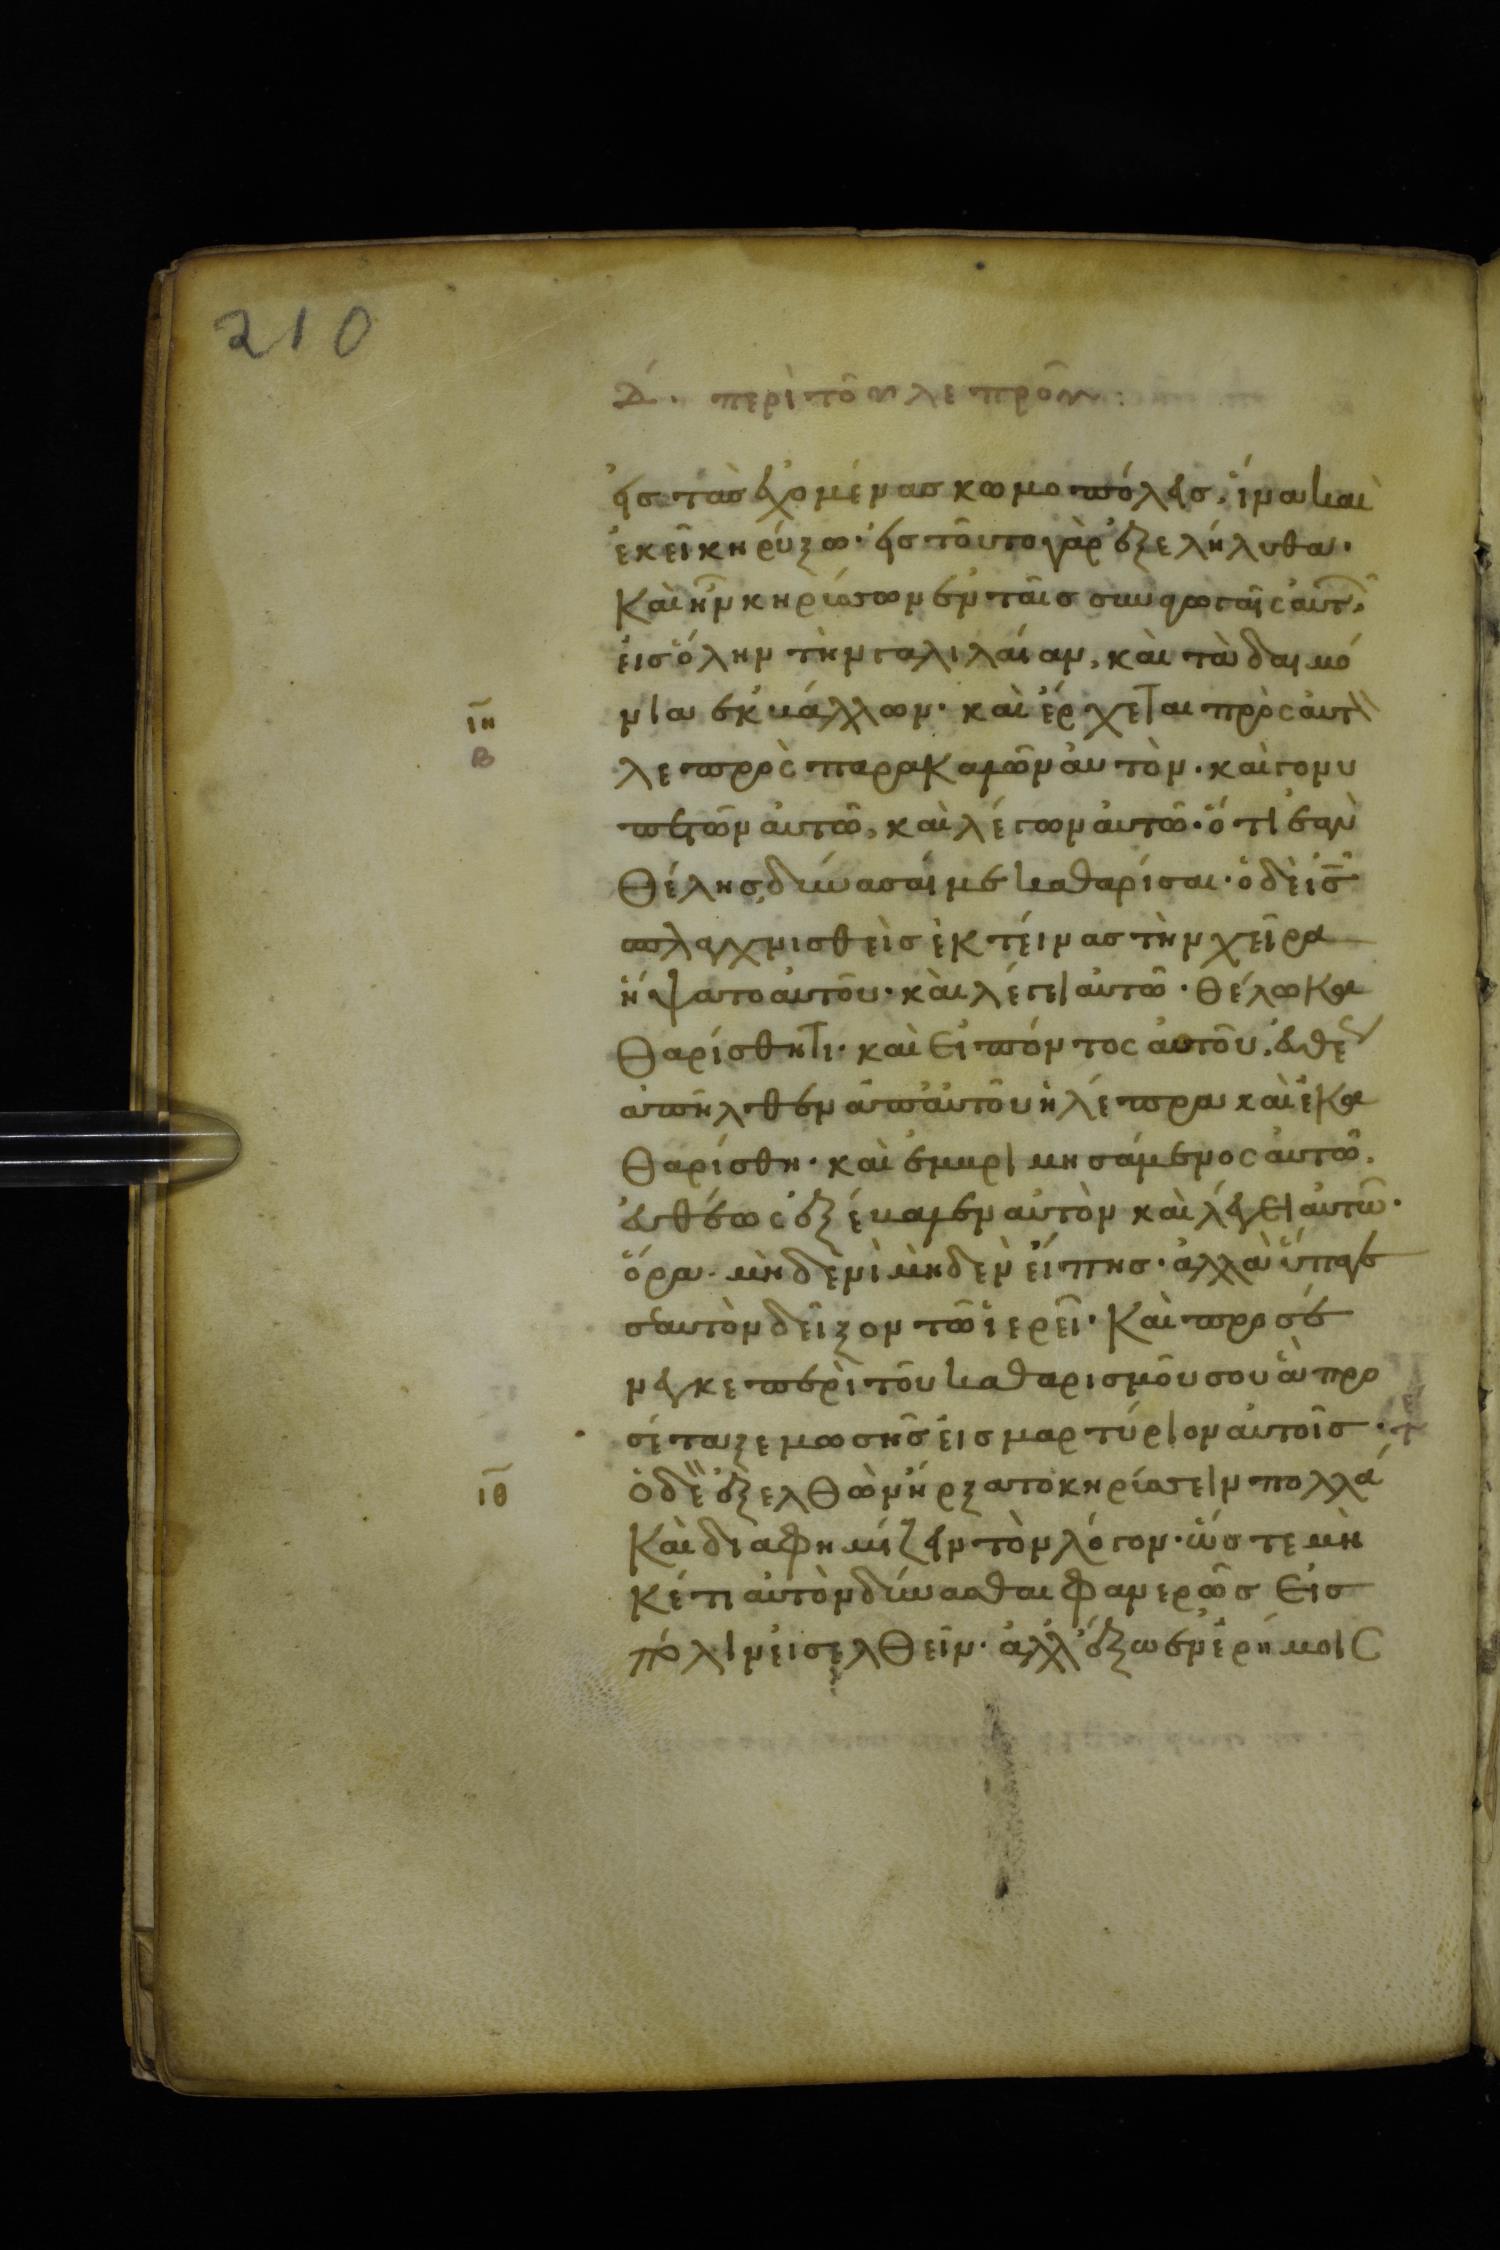 210
Δ. περὶ τοῦ λεπροῦ:
εἰς τὰς ἐχομένας κωμοπόλεις, ἵνα καὶ
ἐκεῖ κηρύξω· εἰς τοῦτο γὰρ ἐξελήλυθα.
Καὶ ἦν κηρύσσων ἐν ταῖς συναγωγαῖς αὐτῶ
εἰς ὅλην τὴν γαλιλαίαν, καὶ τὰ δαιμό
ιη
νια ἐκβάλλων· καὶ ἔρχεται πρὸς αὐτ
β
λεπρὸς παρακαλῶν αὐτὸν. καὶ γονυ
πετῶν αὐτῶ, καὶ λέγων αὐτῶ· ὅτι ἐὰν
θέλης, δύνασαί με καθαρίσαι· ὁ δὲ ἰς
σπλαγχνισθεὶς ἐκτείνας τὴν χεῖρα
ἥψατο αὐτοῦ· καὶ λέγει αὐτῶ· θέλω κα
θαρίσθητι· καὶ εἰπόντος αὐτοῦ, εὐθὲ
ἀπῆλθεν ἀπ' αὐτοῦ ἡ λέπρα καὶ ἐκα
θαρίσθη· καὶ ἐμβριμησάμενος αὐτῶ,
εὐθέως ἐξέβαλεν αὐτὸν καὶ λέγει αὐτῶ·
ὅρα· μηδενὶ μηδὲν εἴπης· ἀλλὰ ὕπαγε
σεαυτὸν δεῖξον τῶ ἱερεῖ· Καὶ προσέ
νεγκε περὶ τοῦ καθαρισμοῦ σου ἃ προ
σέταξε μωσῆς εἰς μαρτύριον αὐτοῖς.
ιθ
ὁ δὲ ἐξελθὼν ἤρξατο κηρύσσειν πολλά
Καὶ διαφημίζειν τὸν λόγον· ὥστε μὴ
κέτι αὐτὸν δύνασθαι φανερῶς εἰς
πόλιν εἰσελθεῖν· ἀλλ' ἔξω ἐν ἐρήμοις